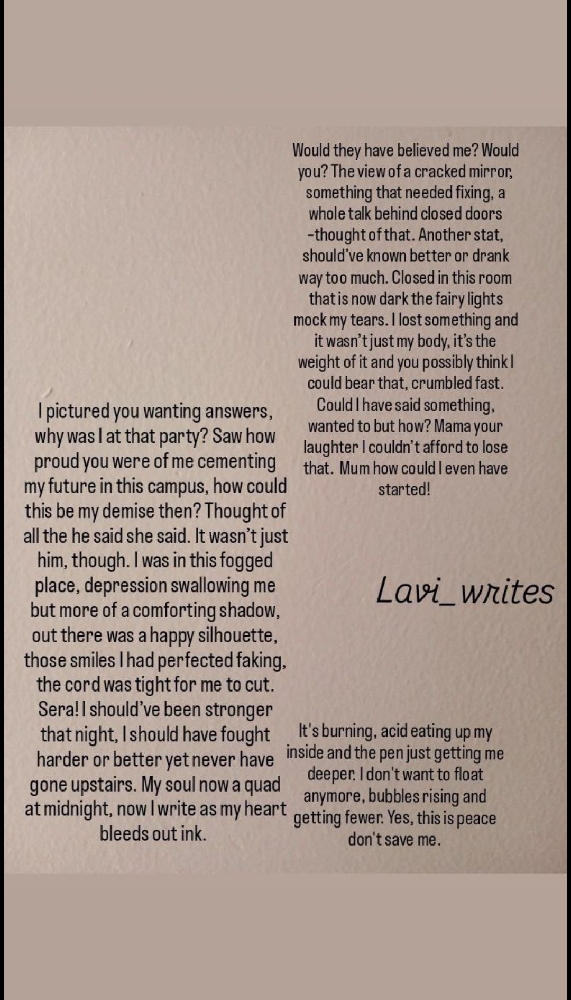 Would they have believed me? Would
you? The view of a cracked mirror,
something that needed fixing, a
whole talk behind closed doors
-thought of that. Another stat,
should've known better or drank
way too much. Closed in this room
that is now dark the fairy lights
mock my tears. I lost something and
it wasn't just my body, it's the
weight of it and you possibly think I
could bear that, crumbled fast.
Could I have said something,
wanted to but how? Mama your
laughter I couldn't afford to lose
that. Mum how could I even have
started!
I pictured you wanting answers,
why was I at that party? Saw how
proud you were of me cementing
my future in this campus, how could
this be my demise then? Thought of
all the he said she said. It wasn't just
him, though. I was in this fogged
place, depression swallowing me
but more of a comforting shadow,
out there was a happy silhouette,
those smiles I had perfected faking,
the cord was tight for me to cut.
Sera! I should've been stronger
that night, I should have fought
harder or better yet never have
gone upstairs. My soul now a quad
at midnight, now I write as my heart
bleeds out ink.
Lavi_writes
It's burning, acid eating up my
inside and the pen just getting me
deeper. I don't want to float
anymore, bubbles rising and
getting fewer. Yes, this is peace
don't save me.